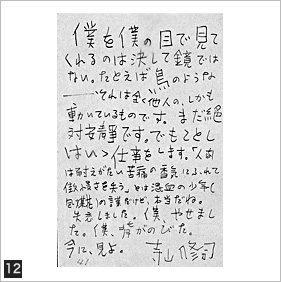 僕を僕の目で見て
くれるのは決して鏡では
ない。たとえば鳥のような
──それは全く他人の、しかも
動いているものです。まだ絶
対安静です。でもことし
はいゝ仕事をします。「人間
は耐えがたい苦痛の香気にふれて
傲慢さを失う」とは混血の少年(
気媒)の謹だけど、本当だね。
失恋しました。僕、やせまし
た。僕、背がのびた。
今に、見よ。 寺山修司
12